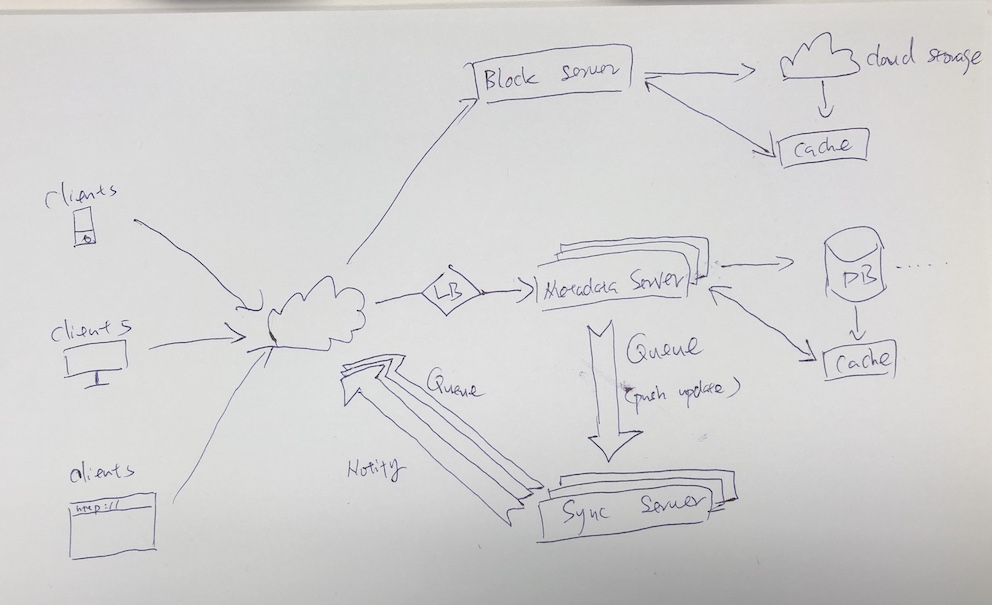 Block server
cloud storage
cache
clients
clients
clients
http://
LB
Metadata Server
DB
cache
Queue
(push update)
Queue
Notify
Sync Server